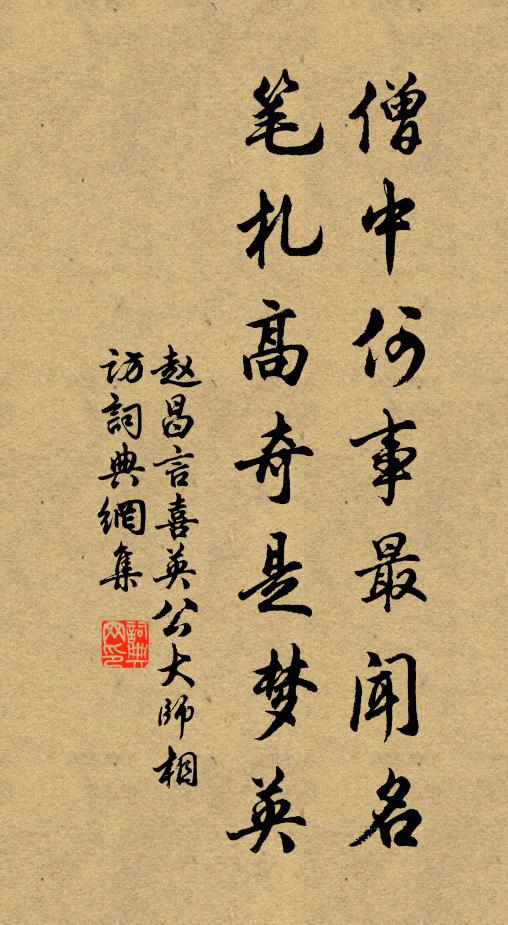 僧中何事最闻名
笔札高奇是梦英
赵昌言喜英公大師相
访詞典網集
詞典网印